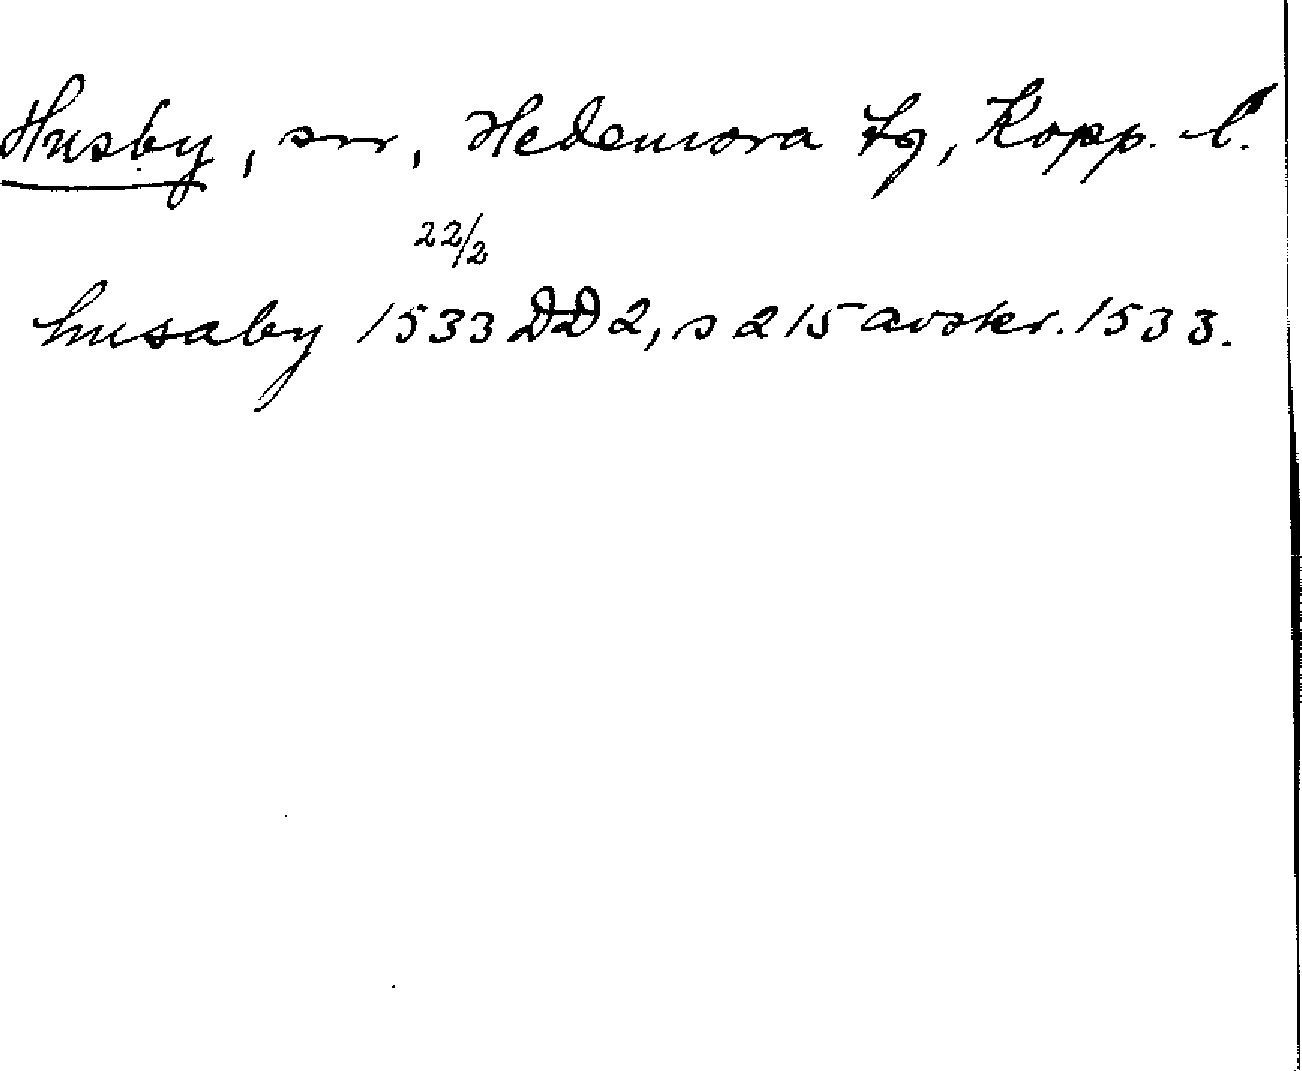 Husby, sn, Hedemora tg, Kopp. l.
22/2
husaby 1533 DD 2, s 215 avskr. 1533.